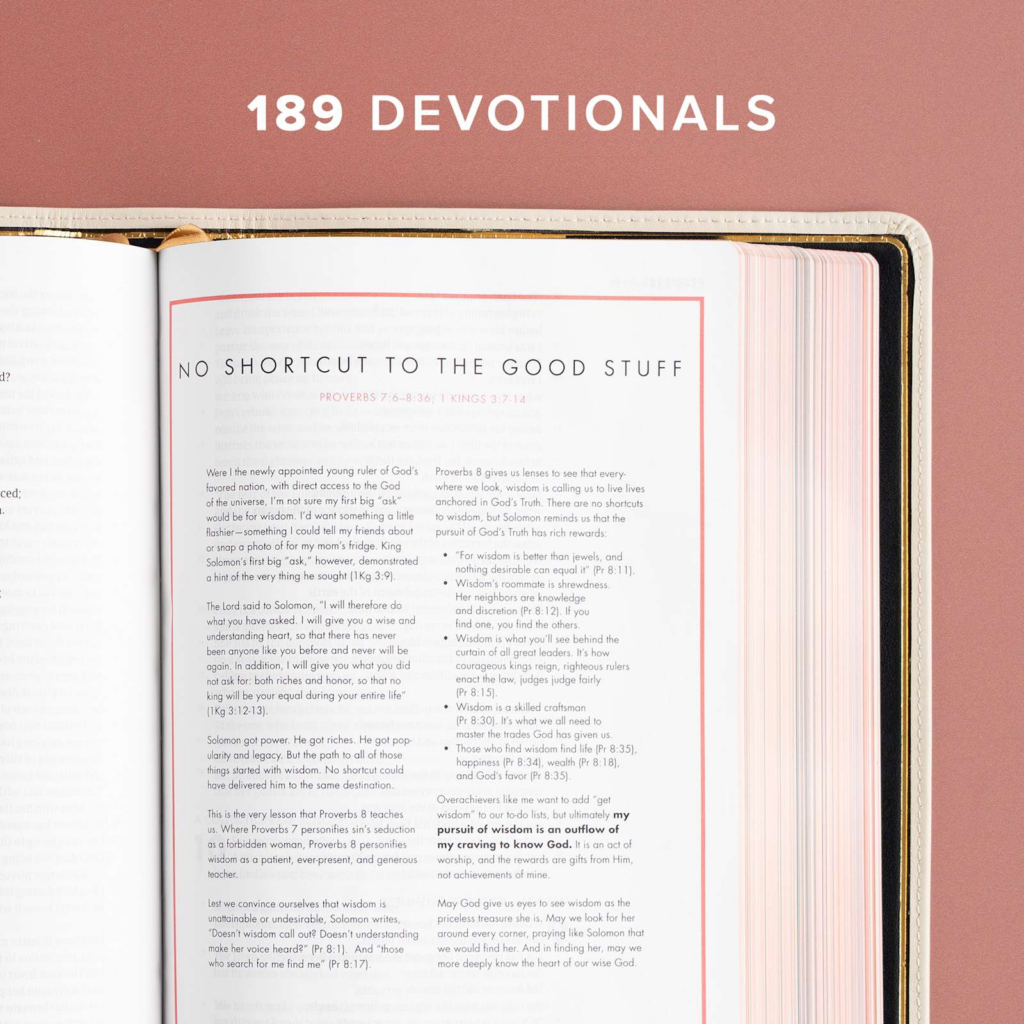 189 DEVOTIONALS
d?
ced;
NO SHORTCUT TO THE GOOD STUFF
PROVERBS 7:6–8:36; 1 KINGS 3:7-14
Were I the newly appointed young ruler of God's
favored nation, with direct access to the God
of the universe, I'm not sure my first big "ask"
would be for wisdom. I'd want something a little
flashier—something I could tell my friends about
or snap a photo of for my mom's fridge. King
Solomon's first big "ask," however, demonstrated
a hint of the very thing he sought (1Kg 3:9).
The Lord said to Solomon, "I will therefore do
what you have asked. I will give you a wise and
understanding heart, so that there has never
been anyone like you before and never will be
again. In addition, I will give you what you did
not ask for: both riches and honor, so that no
king will be your equal during your entire life"
(1Kg 3:12-13).
Solomon got power. He got riches. He got pop-
ularity and legacy. But the path to all of those
things started with wisdom. No shortcut could
have delivered him to the same destination.
This is the very lesson that Proverbs 8 teaches
us. Where Proverbs 7 personifies sin's seduction
as a forbidden woman, Proverbs 8 personifies
wisdom as a patient, ever-present, and generous
teacher.
Lest we convince ourselves that wisdom is
unattainable or undesirable, Solomon writes,
"Doesn't wisdom call out? Doesn't understanding
make her voice heard?" (Pr 8:1). And "those
who search for me find me" (Pr 8:17).
Proverbs 8 gives us lenses to see that every-
where we look, wisdom is calling us to live lives
anchored in God's Truth. There are no shortcuts
to wisdom, but Solomon reminds us that the
pursuit of God's Truth has rich rewards:
• "For wisdom is better than jewels, and
nothing desirable can equal it" (Pr 8:11).
• Wisdom's roommate is shrewdness.
Her neighbors are knowledge
and discretion (Pr 8:12). If you
find one, you find the others.
• Wisdom is what you'll see behind the
curtain of all great leaders. It's how
courageous kings reign, righteous rulers
enact the law, judges judge fairly
(Pr 8:15).
• Wisdom is a skilled craftsman
(Pr 8:30). It's what we all need to
master the trades God has given us.
• Those who find wisdom find life (Pr 8:35),
happiness (Pr 8:34), wealth (Pr 8:18),
and God's favor (Pr 8:35).
Overachievers like me want to add "get
wisdom" to our to-do lists, but ultimately my
pursuit of wisdom is an outflow of
my craving to know God. It is an act of
worship, and the rewards are gifts from Him,
not achievements of mine.
May God give us eyes to see wisdom as the
priceless treasure she is. May we look for her
around every corner, praying like Solomon that
we would find her. And in finding her, may we
more deeply know the heart of our wise God.